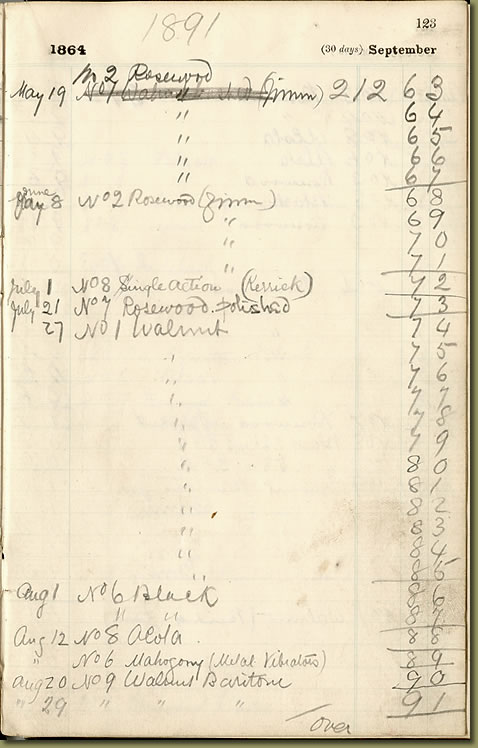 1891
123
1864 (30 days) September
No 2 Rosewood
May 19 No 1 (Zimm) 212 63
" 64
" 65
" 66
" 67
June 8 No 2 Rosewood (Zimm) 68
" 69
" 70
" 71
July 1 No 8 Single Action (Kerrick) 72
July 21 No 7 Rosewood polished 73
27 No 1 Walnut 74
" 75
" 76
" 77
" 78
" 79
" 80
" 81
" 82
" 83
" 84
" 85
Aug 1 No 6 Black 86
" " 87
Aug 12 No 8 Aeola. 88
" No 6 Mahogony (Metal Vibrators) 89
Aug 20 No 9 Walnut Baritone 90
" 29 " " " 91
over